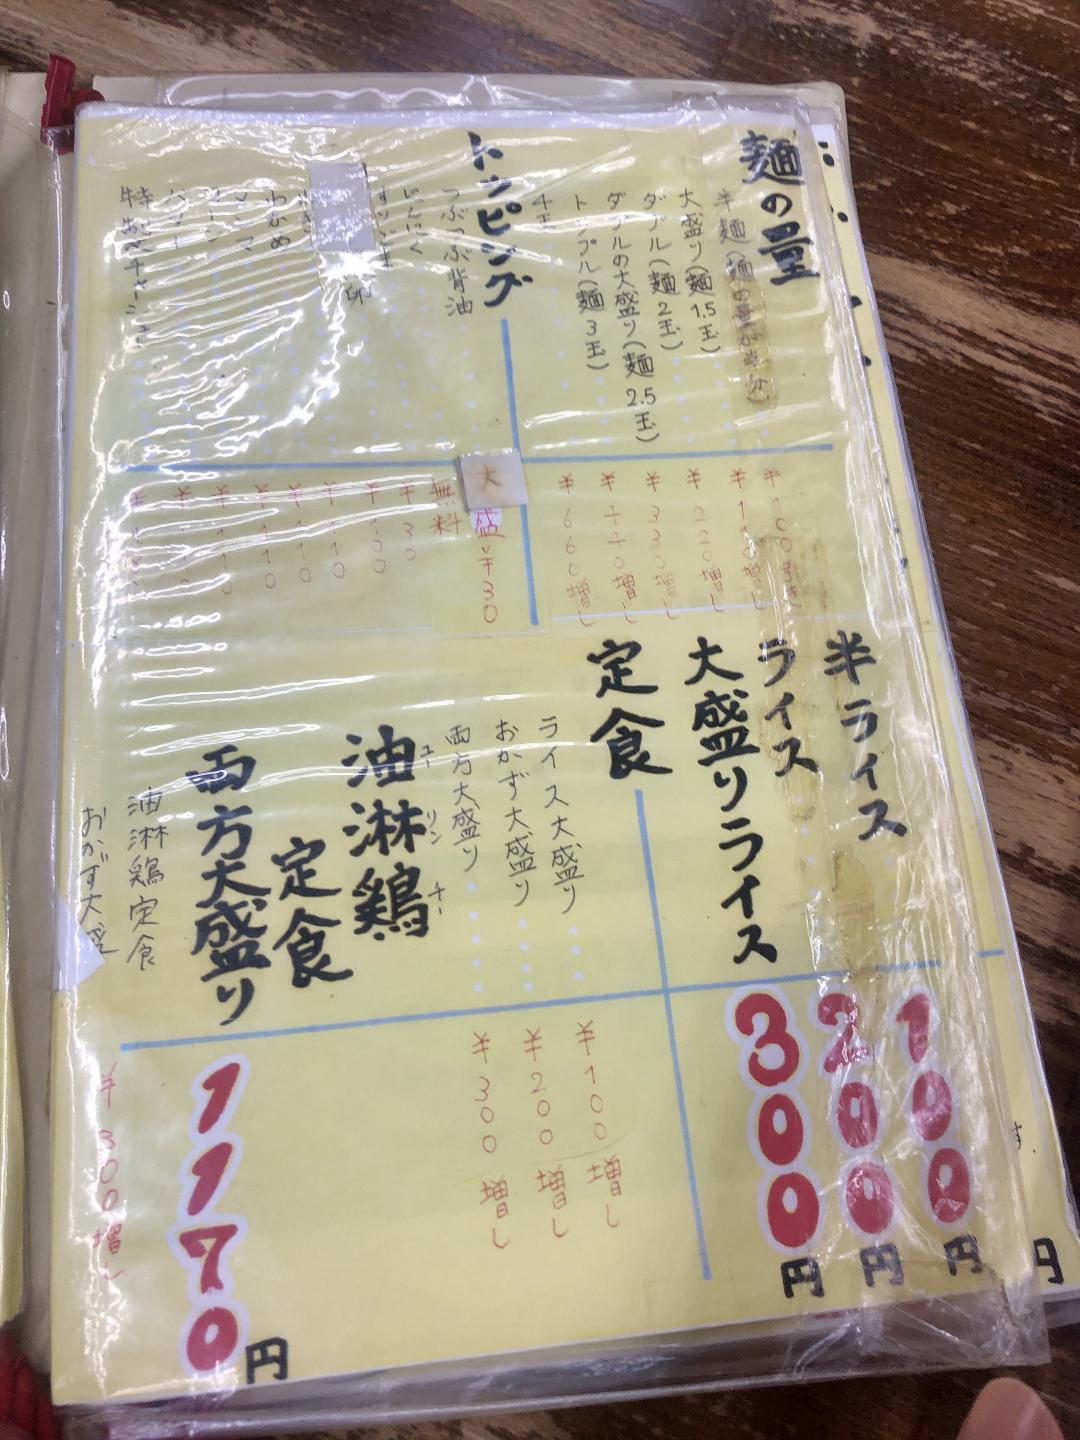 麺の量
半麺(麺の量が半分)
¥100引き
大盛り(麺1.5玉)
¥110増し
ダブル(麺2玉)
¥220増し
ダブルの大盛り(麺2.5玉)
¥330増し
トリプル(麺3玉)
¥440増し
4玉
¥660増し
トッピング
大盛り¥30
つぶつぶ背油
無料
にんにく
¥30
卵
わかめ
¥110
メンマ
¥110
特製チャーシュー
半ライス
100円
ライス
200円
大盛りライス
300円
定食
ライス大盛り
¥100増し
おかず大盛り
¥200増し
両方大盛り
¥300増し
油淋鶏
ユーリンチー
定食
両方大盛り
1170円
油淋鶏定食
おかず大盛
¥300増し
円
す.